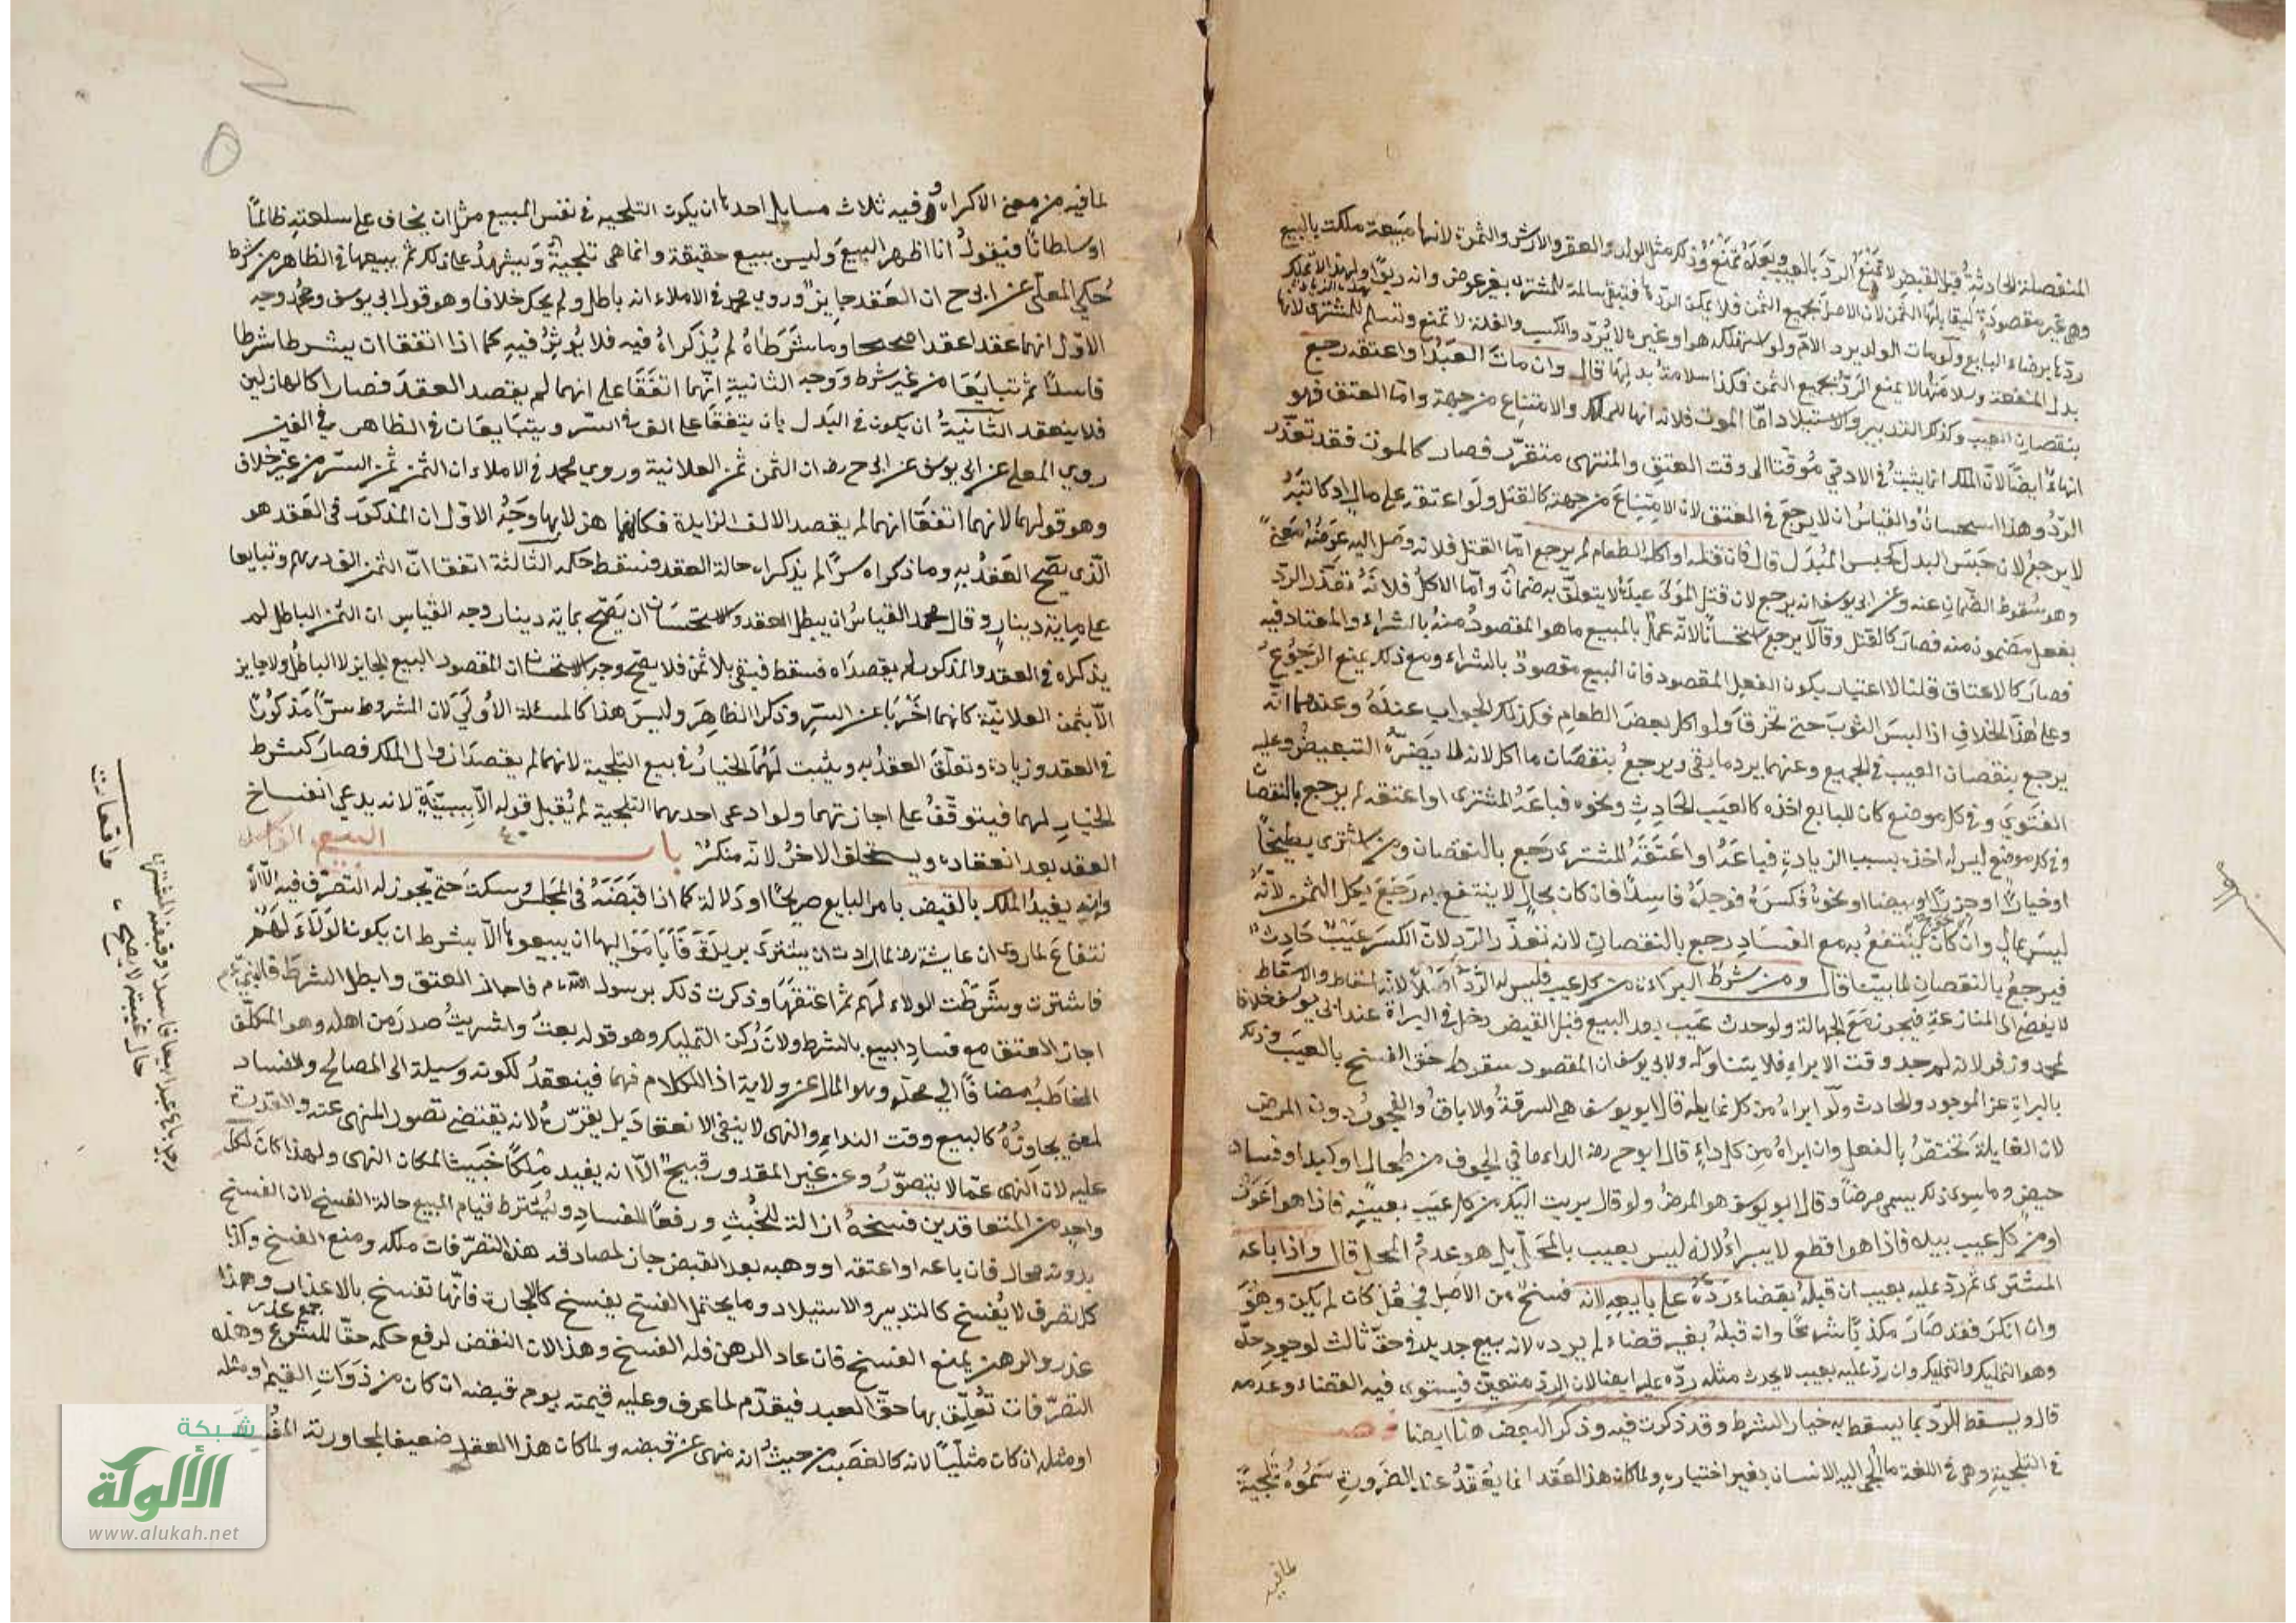 المنفصلة الحادثة قبل القبض لا تمنع الرد بالعيب وبعده تمنع وذكر مثل الولد والعقر والارش والثمرة لانها مبيعة ملكت بالبيع
وهي غير مقصودة ليقابلها الثمن لان الاصل بجميع الثمن فلا يمكن الردها فتبقى سالمة للمشتري بغير عوض وانه ربوا ولهذا لا تملك
ردها برضاء البايع ولو مات الولد يرد الام ولو استهلكه هو او غيره لا يرد والكسب والغلة لا تمنع وتسلم للمشتري لانها
بدل المنفعة وسلامتها لا يمنع الرد بجميع الثمن فكذا سلامة بدلها قال وان مات العبد او اعتقه رجع
بنقصان العيب وكذلك التدبير والاستيلاد اما الموت فلانه انهاء للملك والامتناع من جهة واما العتق فهو
انهاء ايضا لان الملك انما يثبت في الادمي موقتا الى وقت العتق والمنتهى متقرر فصار كالموت فقد تعذر
الرد وهذا استحسان والقياس ان لا يرجع في العتق لان الامتناع من جهته كالقتل ولو اعتقه على مال او كاتبه
لا يرجع لان حبس البدل كحبس المبدل قال فان قتله او اكل الطعام لم يرجع اما القتل فلانه وصل اليه عوضه معنى
وهو سقوط الضمان عنه وعن ابي يوسف انه يرجع لان قتل المولى عبده لا يتعلق به ضمان واما الاكل فلانه تعذر الرد
بفعل مضمون منه فصار كالقتل وقالا يرجع استحسانا لانه عمل بالمبيع ما هو المقصود منه بالشراء والمعتاد فيه
فصار كالاعتاق قلنا لا اعتبار بكون الفعل المقصود فان البيع مقصود بالشراء ومع ذلك يمنع الرجوع
وعلى هذا الخلاف اذا لبس الثوب حتى تخرق ولو اكل بعض الطعام فكذلك الجواب عنده وعندهما انه
يرجع بنقصان العيب في الجميع وعنهما يرد ما بقي ويرجع بنقصان ما اكل لانه لا يضره التبعيض وعليه
الفتوى وفي كل موضع كان للبايع اخذه كالعيب الحادث ونحوه فباعه المشتري او اعتقه لم يرجع بالنقصان
وفي كل موضع ليس له اخذه بسبب الزيادة فباعه او اعتقه المشتري رجع بالنقصان ومن اشترى بطيخا
او خيارا او جوزا او بيضا او نحوه فكسره فوجده فاسدا فان كان بحال لا ينتفع به رجع بكل الثمن لانه
ليس بمال وان كان ينتفع به مع الفساد رجع بالنقصان لانه تعذر الرد لان الكسر عيب حادث
فيرجع بالنقصان لما بينا قال ومن شرط البراءة من كل عيب فليس له الرد اصلا لانه اسقاط والاسقاط
لا يفضي الى المنازعة فيجوز مع الجهالة ولو حدث عيب بعد البيع قبل القبض دخل في البراة عند ابي يوسف خلافا
لمحمد وزفر لانه لم يوجد وقت الابراء فلا يتناوله ولابي يوسف ان المقصود سقوط حق الفسخ بالعيب وذلك
بالبراة عن الموجود والحادث ولو ابراه من كل غايلة قال ابو يوسف هي السرقة والاباق والفجور دون المرض
لان الغايلة تختص بالفعل وان ابراه من كل داء قال ابو ح رضه الداء ما في الجوف من طحال او كبد او فساد
حيض وما سوى ذلك يسمى مرضا وقال ابو يوسف هو المرض ولو قال بريت اليك من كل عيب بعينه فاذا هو اعور
او من كل عيب بيده فاذا هو اقطع لا يبرا لانه ليس بعيب بالمحل بل هو عدم المحل قال واذا باعه
المشتري ثم رد عليه بعيب ان قبله بقضاء رده على بايعه لانه فسخ من الاصل فجعل كان لم يكن وهو
وان انكر فقد صار مكذبا شرعا وان قبله بغير قضاء لم يرده لانه بيع جديد في حق ثالث لوجود حده
وهو التمليك والتملك وان رد عليه بعيب لا يحدث مثله رده عليه ايضا لان الرد متعين فيستوى فيه القضاء وعدمه
قال ويسقط الرد بما يسقط به خيار الشرط وقد ذكرت فيه وذكر البعض هنا ايضا فصل
في التلجية وهي في اللغة ما الجئ اليه الانسان بغير اختياره ولما كان هذا العقد انما يعقد عند الضرورة سموه تلجية
لما فيه
لما فيه من معنى الاكراه وفيه ثلاث مسايل احدها ان يكون التلجيه في نفس المبيع مثل ان يخاف على سلعته ظالما
او سلطانا فيقول انا اظهر البيع وليس ببيع حقيقة وانما هي تلجية ويشهد على ذلك ثم يبيعها في الظاهر من شرط
حكي المعلى عن ابي ح ان العقد جايز وروى محمد في الاملاء انه باطل ولم يحك خلافا وهو قول ابي يوسف ومحمد وجه
الاول انهما عقدا عقدا صحيحا وما شرطاه لم يذكراه فيه فلا يؤثر فيه كما اذا اتفقا ان يشرطا شرطا
فاسدا ثم تبايعا من غير شرط ووجه الثانية انهما اتفقا على انهما لم يقصد العقد فصارا كالهازلين
فلا ينعقد الثانية ان يكون في البدل بان يتفقا على الف في السر ويتبايعان في الظاهر في الفين
روى المعلى عن ابي يوسف عن ابي ح رضه ان الثمن ثمن العلانية وروي محمد في الاملاء ان الثمن ثمن السر من غير خلاف
وهو قولهما لانهما اتفقا انهما لم يقصد الالف الزايدة فكانهما هزلا بها وجه الاول ان المذكور في العقد هو
الذي يصح العقد به وما ذكراه سرا لم يذكراه حالة العقد فسقط حكمه الثالثة اتفقا ان الثمن الف درهم وتبايعا
على ماية دينار وقال محمد القياس ان يبطل العقد والاستحسان ان يصح بماية دينار وجه القياس ان الثمن الباطل لم
يذكراه في العقد والمذكور لم يقصداه فسقط فبقي بلا ثمن فلا يصح وجه الاستحسان ان المقصود البيع الجايز لا الباطل ولا جايز
الا بثمن العلانية كانهما اضربا عن السر وذكرا الظاهر وليس هذا كالمسئلة الاولى لان المشروط سرا مذكورا
في العقد وزيادة وتعلق العقد به ويثبت لهما الخيار في بيع التلجية لانهما لم يقصدا زوال الملك فصار كشرط
الخيار لهما فيتوقف على اجازتهما ولو ادعى احدهما التلجية لم يقبل قوله الا ببينة لانه يدعي انفساخ
العقد بعد انعقاده ويستحلف الاخر لانه منكر باب البيع الفاسد
وانه يفيد الملك بالقبض بامر البايع صريحا او دلالة كما اذا قبضه في المجلس وسكت حتى يجوز له التصرف فيه الا الا
نتفاع لما روي ان عايشة رضه لما ارادت ان يشتري بريرة فابا مواليها ان يبيعوها الا بشرط ان يكون الولاء لهم
فاشترت وشرطت الولاء لهم ثم اعتقتها وذكرت ذلك برسول الله عم فاجاز العتق وابطل الشرط فالنبي عم
اجاز العتق مع فساد البيع بالشرط ولان ركن التمليك وهو قوله بعت واشتريت صدر من اهله وهو المكلف
المخاطب مضافا الى محله وهو المال عن ولاية اذ الكلام فيهما فينعقد لكونه وسيلة الى المصالح والفساد
لمعنى يجاوره كالبيع وقت النداء والنهي لا ينفي الانعقاد بل يقرره لانه يقتضي تصور المنهي عنه والقدرة
عليه لان النهي عما لا يتصور وعن غير المقدور قبيح الا انه يفيد ملكا خبيثا لمكان النهي ولهذا كان لكل
واحد من المتعاقدين فسخه ازالة للخبث ورفعا للفساد ويشترط قيام المبيع حالة الفسخ لان الفسخ
بدونه محال فان باعه او اعتقه او وهبه بعد القبض جاز لمصادقه هذه التصرفات ملكه ومنع الفسخ وكذا
كل تصرف لا يفسخ كالتدبير والاستيلاد وما يحتمل الفسخ يفسخ كالاجارة فانها تفسخ بالاعذار وهذا
عذر والرهن يمنع الفسخ فان عاد الرهن فله الفسخ وهذا لان النقض لرفع حكمه حقا للشرع وهذه
جمع عذر
التصرفات تعلق بها حق العبد فيقدم لما عرف وعليه قيمته يوم قبضه ان كان من ذوات القيم او مثله
او مثله ان كان مثليا لانه كالغصب من حيث انه منهى عن قبضه ولما كان هذا العقد ضعيفا لمجاورته المفسد
رجل باع عبدا بيعا فاسدا وقبضه المشتري
حال غيبته لا يصح
واقعات
شبكة
الألوكة
www.alukah.net